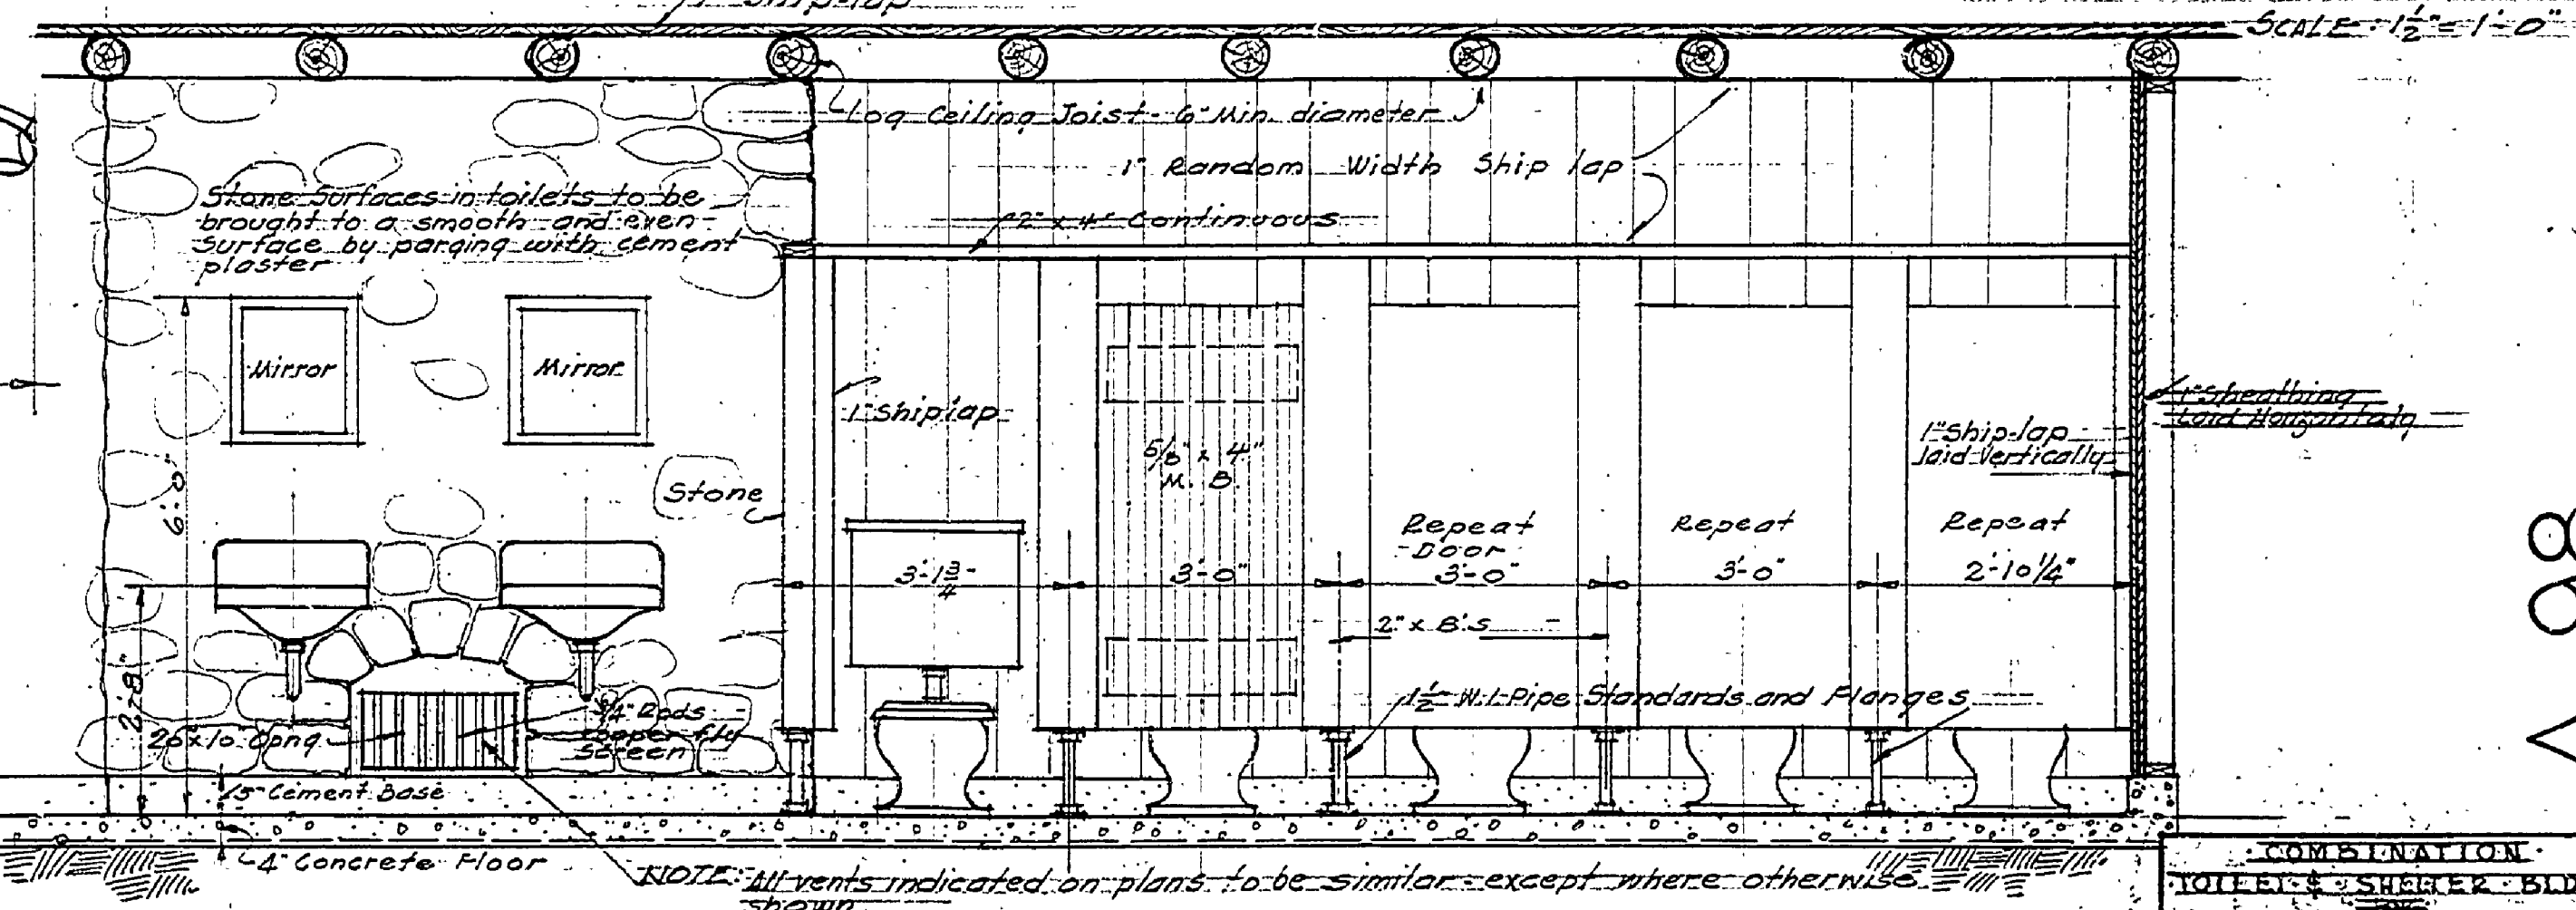 Ship-lap
SCALE · 1½" = 1'-0"
Log Ceiling Joist - 6" Min. diameter
1" Random Width Ship lap
2" x 4" Continuous
Stone Surfaces in toilets to be
brought to a smooth and even
surface by parging with cement
plaster
Mirror
Mirror
6'-0"
1" Shiplap
5/8" x 4"
M. B.
1" Sheathing
Laid Horizontally
1" Ship-lap
laid Vertically
Stone
Repeat
Door
Repeat
Repeat
3'-1¾"
3'-0"
3'-0"
3'-0"
2'-10¼"
2" x 8's
2'-8"
1½" W.I. Pipe Standards and Flanges
20"x10" Opng.
¾" Rods
copper fly
screen
5" Cement Base
4" Concrete Floor
NOTE: All vents indicated on plans to be similar - except where otherwise
shown
COMBINATION
TOILET & SHELTER BLD